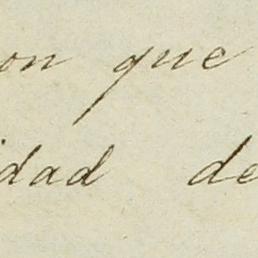 on que
dad de